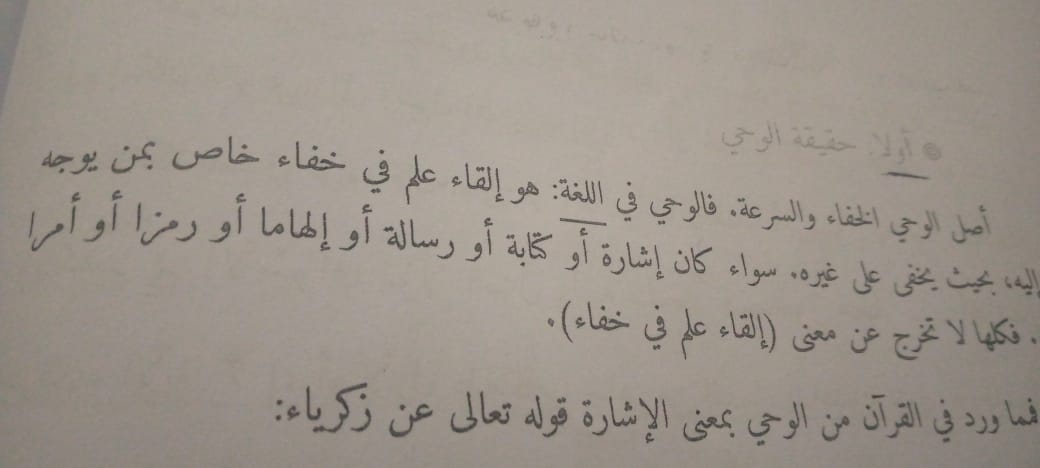 ● أولا: حقيقة الوحي
أصل الوحي الخفاء والسرعة. فالوحي في اللغة: هو إلقاء علم في خفاء خاص بمن يوجه
إليه، بحيث يخفى على غيره. سواء كان إشارة أو كتابة أو رسالة أو إلهاما أو رمزا أو أمرا
. فكلها لا تخرج عن معنى (إلقاء علم في خفاء).
فمما ورد في القرآن من الوحي بمعنى الإشارة قوله تعالى عن زكرياء: